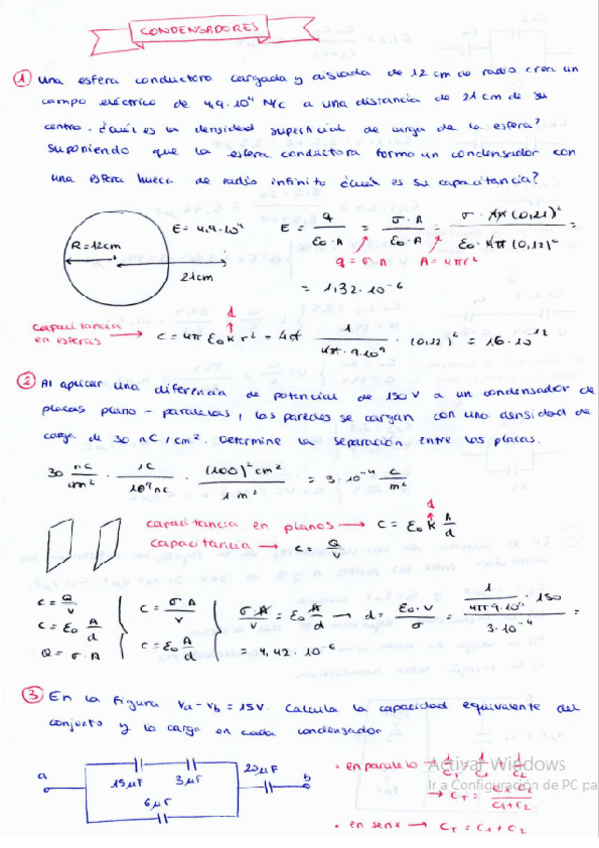 CONDENSADORES
① Una esfera conductora cargada y aislada de 12 cm de radio crea un
campo eléctrico de 4,9·10⁴ N/C a una distancia de 21 cm de su
centro. ¿Cuál es la densidad superficial de carga de la esfera?
Suponiendo que la esfera conductora forma un condensador con
una esfera hueca de radio infinito ¿cuál es su capacitancia?
R=12cm
E = 4,9·10⁴
21cm
E = q / ε₀·A = σ·A / ε₀·A = σ·4π(0,21)² / ε₀·4π(0,12)² =
q = σ·A A = 4πr²
= 1,32·10⁻⁶
capacitancia en esferas → C = 4π ε₀ k r² = 4π 1 / 4π·9·10⁹ · (0,12)² = 16·10¹²
1
② Al aplicar una diferencia de potencial de 150 V a un condensador de
placas plano-paralelas, las paredes se cargan con una densidad de
carga de 30 nC/cm². Determine la separación entre las placas.
30 nC/cm² · 1C/10⁹nC · (100)²cm²/1m² = 3·10⁻⁴ C/m²
1
capacitancia en planos → C = ε₀ k A/d
capacitancia → C = Q/V
C = Q/V
C = ε₀ A/d
Q = σ·A
C = σ·A/V
C = ε₀ A/d
σ·A/V = ε₀ A/d → d = ε₀·V/σ = 1/4π9·10⁹ · 150 / 3·10⁻⁴ =
= 4,42·10⁻⁶
③ En la figura Va - Vb = 15V. Calcula la capacidad equivalente del
conjunto y la carga en cada condensador
a 15μF 3μF 20μF b
6μF
• en paralelo → 1/CT = 1/C1 + 1/C2
→ CT = C1·C2 / C1+C2
• en serie → CT = C1 + C2
Activar Windows
Ir a Configuración de PC pa